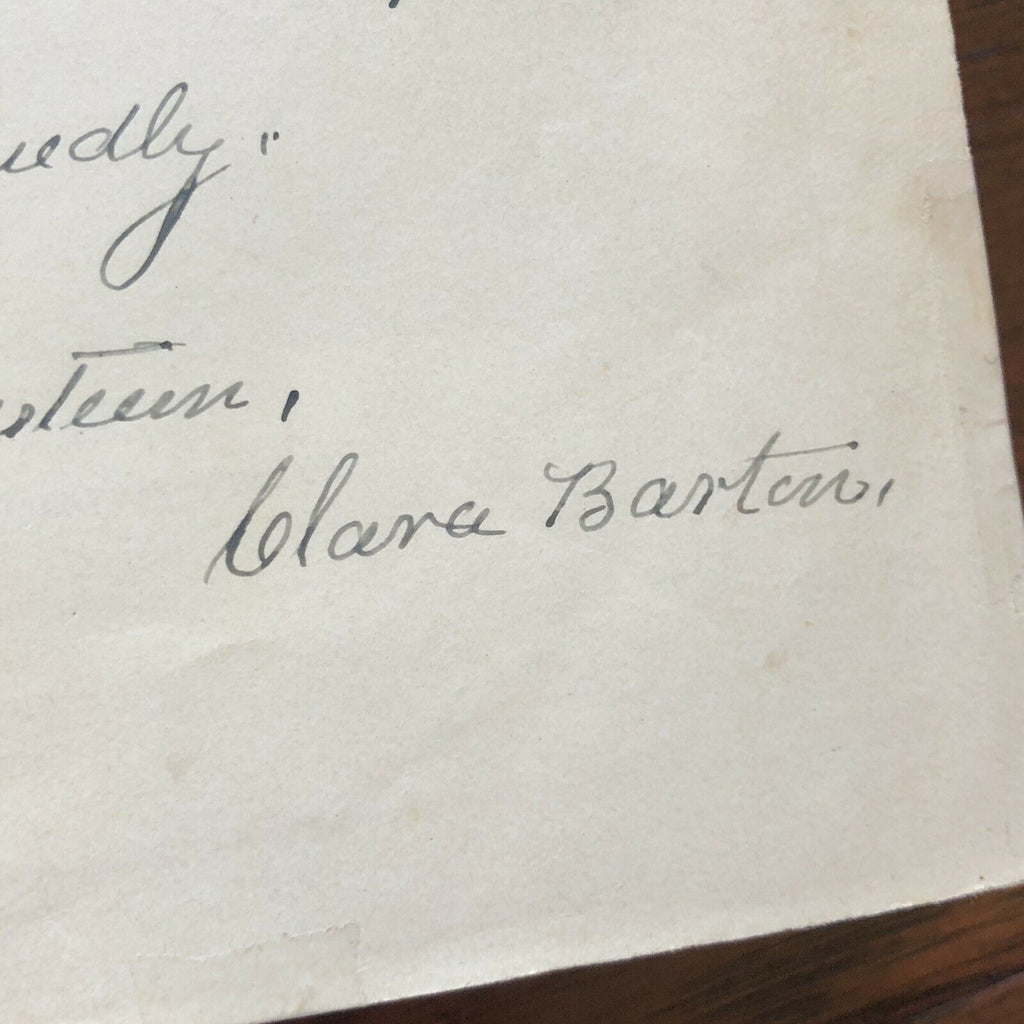 uedly.
steem,
Clara Barton.